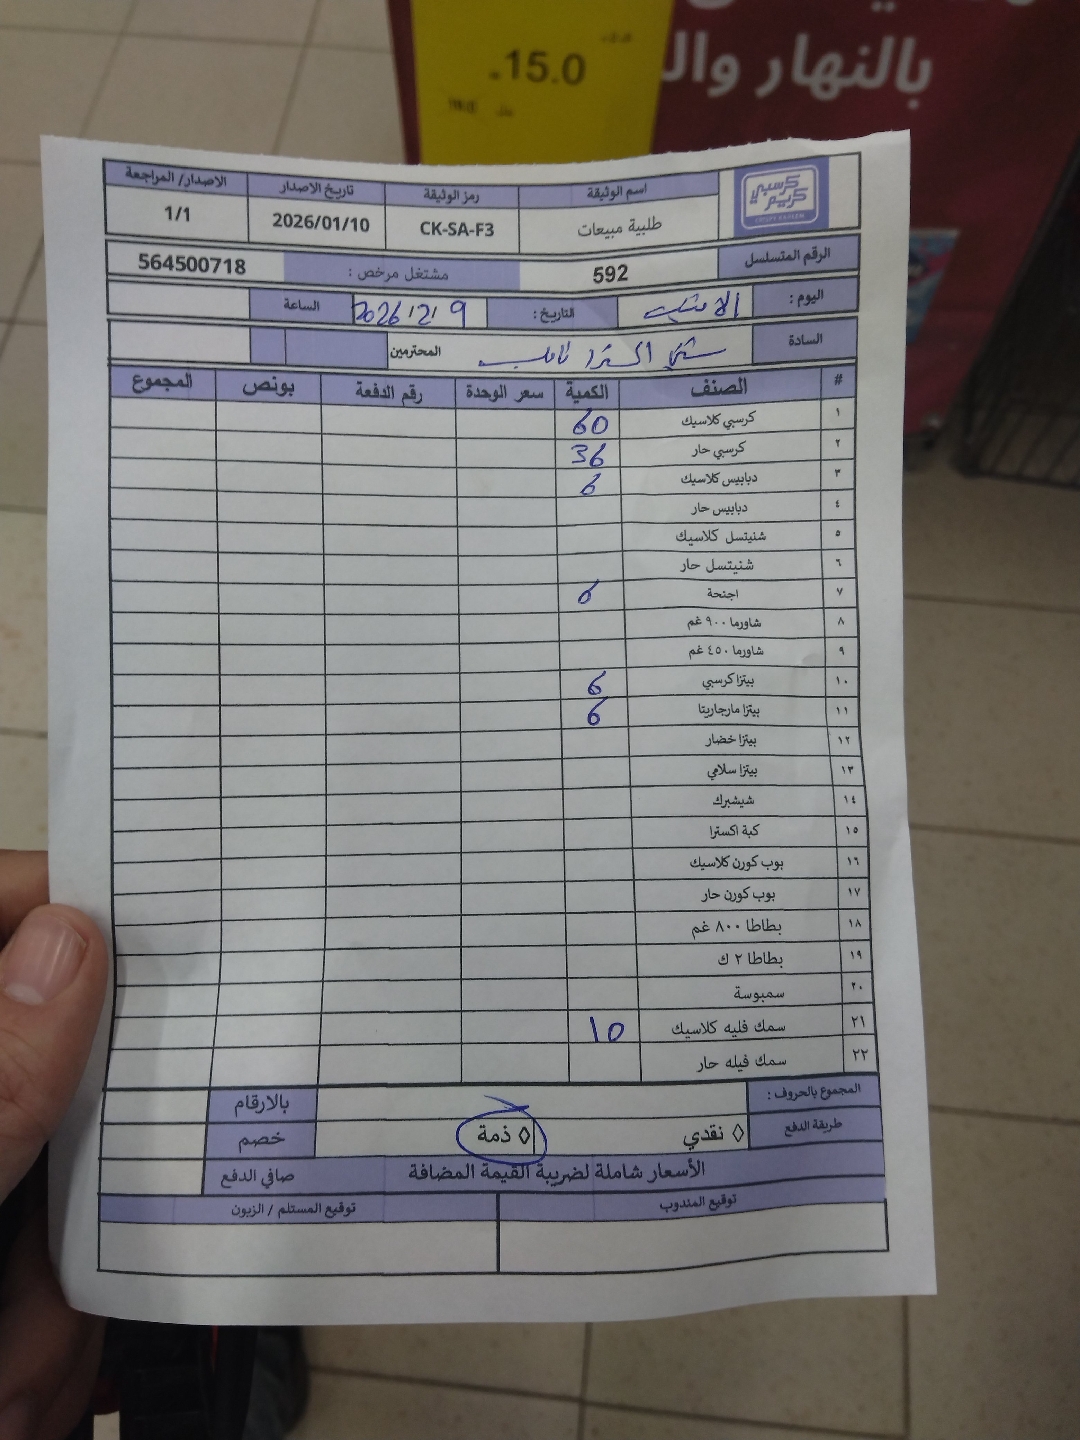 بالنهار وال
15.0
كرسبي كريم
CRISPY KAREEM
اسم الوثيقة رمز الوثيقة تاريخ الاصدار الاصدار/ المراجعة
طلبية مبيعات CK-SA-F3 2026/01/10 1/1
الرقم المتسلسل 592 مشتغل مرخص : 564500718
اليوم : الاثنين التاريخ : 2026/2/9 الساعة
السادة المحترمين
# الصنف الكمية سعر الوحدة رقم الدفعة بونص المجموع
١ كرسبي كلاسيك 60
٢ كرسبي حار 36
٣ دبابيس كلاسيك 6
٤ دبابيس حار
٥ شنيتسل كلاسيك
٦ شنيتسل حار
٧ اجنحة 6
٨ شاورما ٩٠٠ غم
٩ شاورما ٤٥٠ غم
١٠ بيتزا كرسبي 6
١١ بيتزا مارجاريتا 6
١٢ بيتزا خضار
١٣ بيتزا سلامي
١٤ شيشبرك
١٥ كبة اكسترا
١٦ بوب كورن كلاسيك
١٧ بوب كورن حار
١٨ بطاطا ٨٠٠ غم
١٩ بطاطا ٢ ك
٢٠ سمبوسة
٢١ سمك فليه كلاسيك 10
٢٢ سمك فيله حار
المجموع بالحروف : بالارقام
طريقة الدفع ◊ نقدي ◊ ذمة خصم
الأسعار شاملة لضريبة القيمة المضافة صافي الدفع
توقيع المندوب توقيع المستلم / الزبون